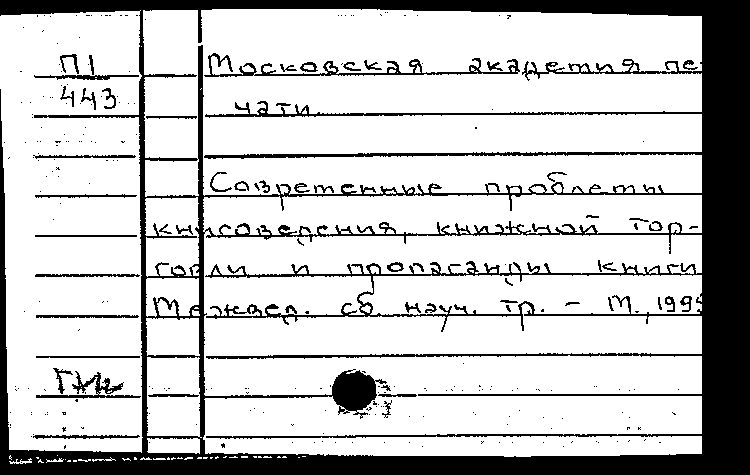 П1
443
Московская академия пе-
чати
Современные проблемы
книговедения, книжной тор-
говли и пропаганды книги
Межвед. сб. науч. тр. - М., 1995